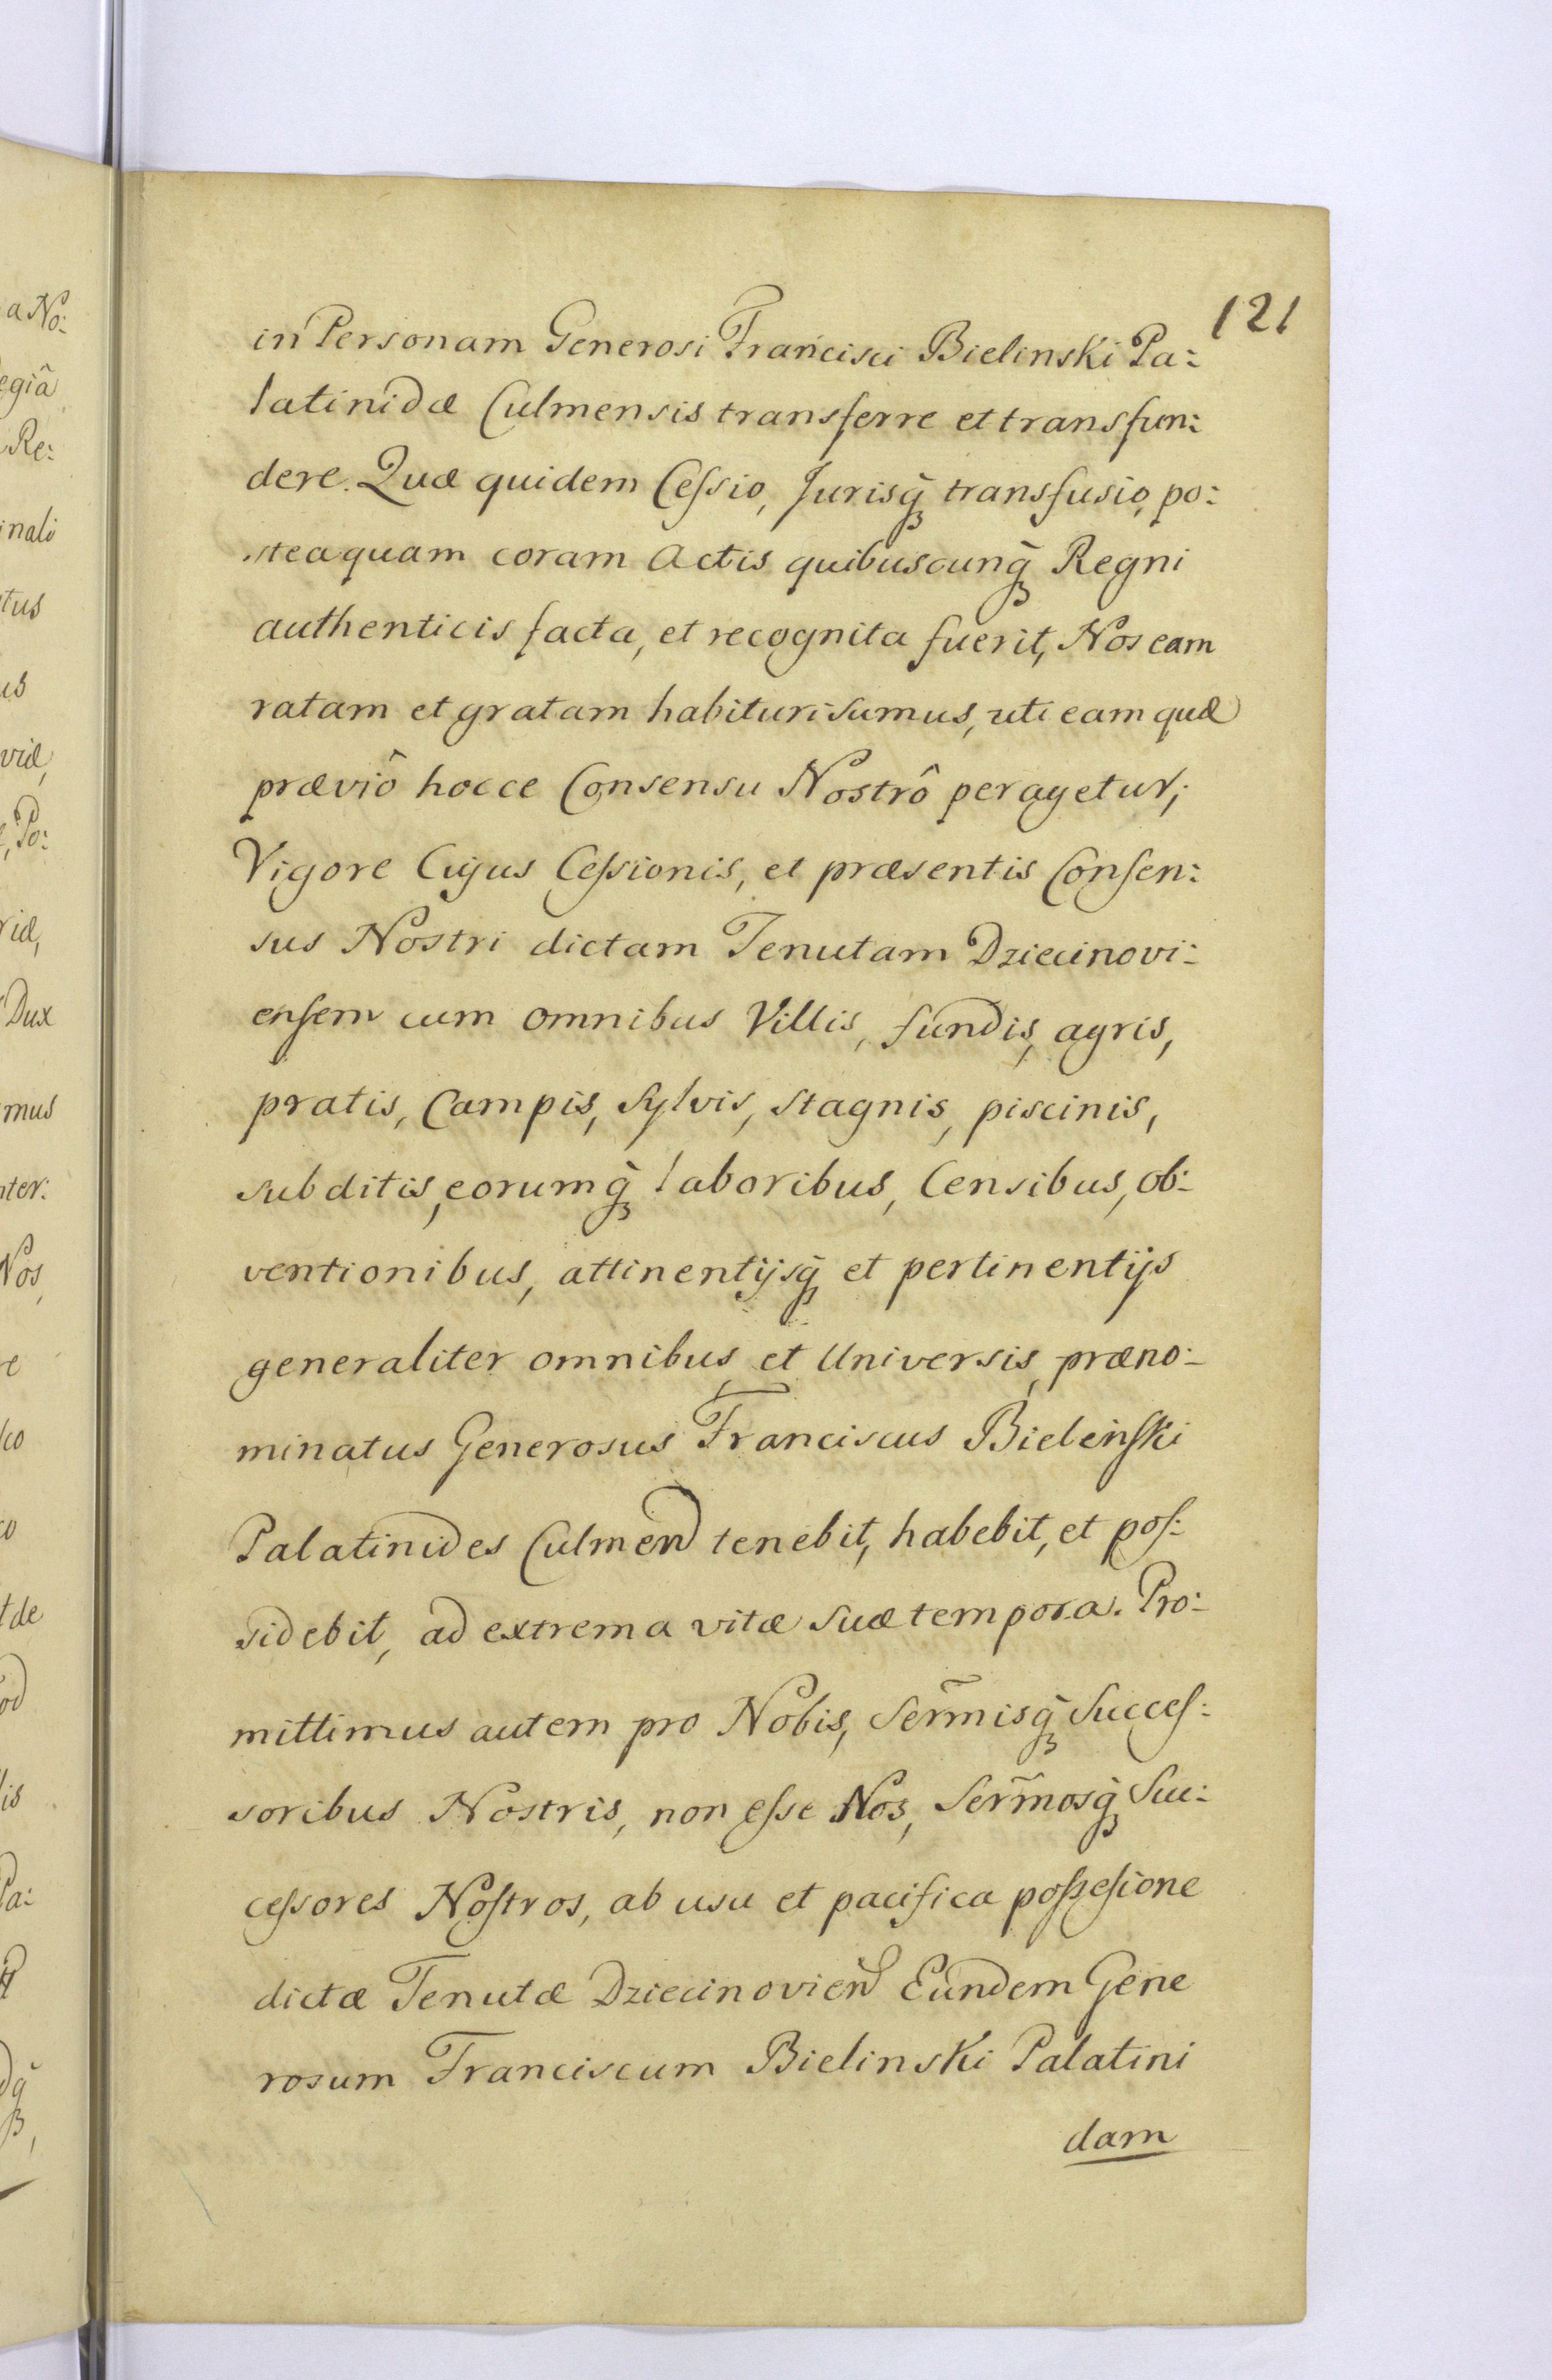 121
in Personam Generosi Francisci Bielinski Pa:
latinidæ Culmensis transferre et transfun:
dere. Quæ quidem Cessio, Jurisq̃ transfusio, po:
steaquam coram Actis quibuscunq̃ Regni
authenticis facta, et recognita fuerit, Nos eam
ratam et gratam habituri sumus, uti eam quæ
præviô hocce Consensu Nostrô peragetur;
Vigore Cujus Cessionis, et præsentis Consen:
sus Nostri dictam Tenutam Dziecinovi:
ensem cum omnibus Villis, fundis, agris,
pratis, Campis, Sylvis, stagnis, piscinis,
subditis, eorumq̃ laboribus, Censibus, ob:
ventionibus, attinentijsq̃ et pertinentijs
generaliter omnibus et Universis, præno:
minatus Generosus Franciscus Bielinski
Palatinides Culmen tenebit, habebit, et pos:
sidebit, ad extrema vitæ suæ tempora. Pro:
mittimus autem pro Nobis, Serm̃isq̃ Succes:
soribus Nostris, non esse Nos, Serm̃osq̃ Suc:
cessores Nostros, ab usu et pacifica possesione
dictæ Tenutæ Dziecinovien Eundem Gene
rosum Franciscum Bielinski Palatini
dam
a No:
egiâ
Re:
inali
tus
us
viæ,
Po:
riæ,
Dux
mus
nter:
Nos,
re
co
t de
od
lis
Pa: